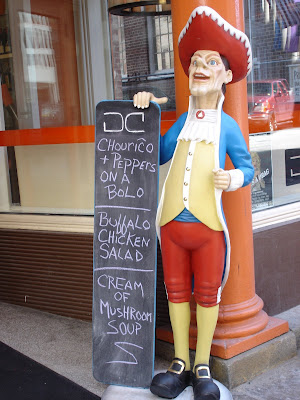 CHOURIÇO
+ PEPPERS
ON A
BOLO
BUFFALO
CHICKEN
SALAD
CREAM
OF
MUSHROOM
SOUP